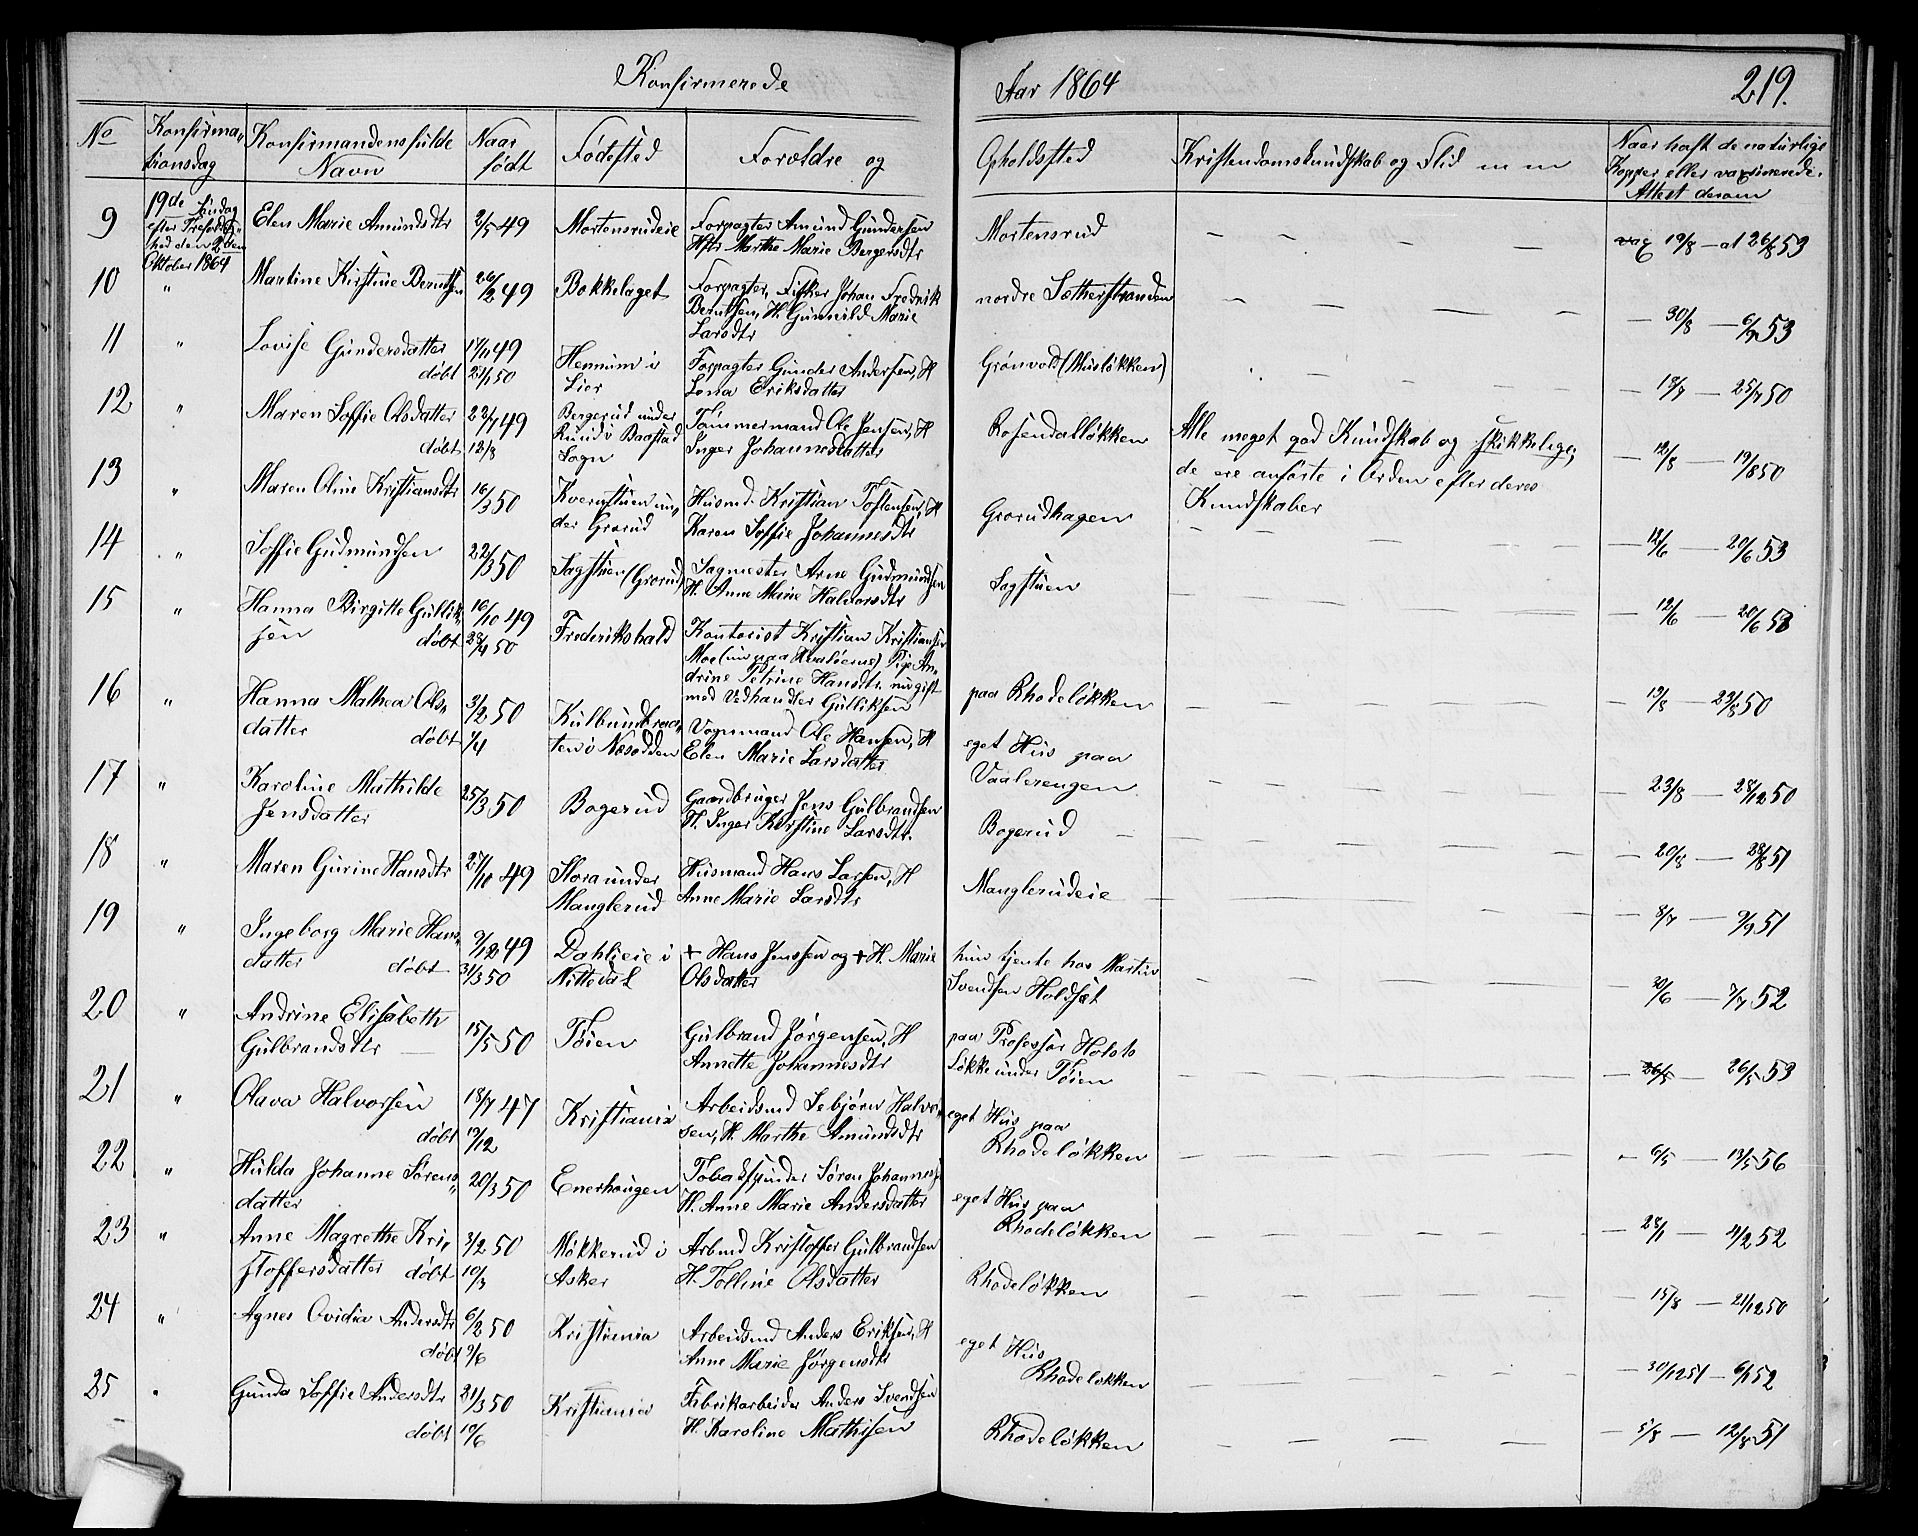 Konfirmerede Aar 1864 219.
No Konfirma„ Konfirmandens fulde Naar Fødested Forældre og Opholdsted Kristendomskundskab og Flid m m Naar haft de naturlige
tionsdag Navn født Kopper eller vaxinerede.
Attest derom
9 19de Søndag Elen Marie Amundsdtr 2/5 49 Mortensrudeie Forpagter Amund Gundersen Mortensrud — — — — vax 19/8 — at 26/8 53
efter Trefoldig„ Hfts Marthe Marie Bergersdtr
hed den 2den
Oktober 1864
10 „ Martine Kirstine Berntsen 26/2 49 Bakkelaget Forpagter, Fisker Johan Fredrik nordre Sætherstranden — — — — — 30/8 — 6/9 53
Berntsen, H. Gunnild Marie
Larsdtr
11 „ Lovise Gundersdatter 17/11 49 Hennum i Forpagter Gunder Andersen, H Grønvold (Musløkken) — — — — — 18/7 — 25/7 50
døbt 21/1 50 Lier Lena Eriksdatter
12 „ Maren Soffie Olsdatter 22/7 49 Bergerud under Tømmermand Ole Jensen, H Rosendalløkken Alle meget god Kundskab og skikkelige, — 12/8 — 19/8 50
døbt 12/8 Rund i Baastad Inger Johannesdatter de ere anførte i Orden efter deres
Sogn Kundskaber
13 „ Maren Oline Kristiansdtr 16/3 50 Kvernstuen un„ Husmd. Kristian Tostensen, H Grorudhagen — — — — — 12/6 — 20/6 53
der Grorud Karen Soffie Johannesdtr
14 „ Soffie Gudmundsen 22/3 50 Sagstuen (Grorud) Sagmester Arne Gudmundsen Sagstuen — — — — — 12/6 — 20/6 53
H. Anne Marie Halvorsdtr
15 „ Hanna Birgitte Gullik„ 16/10 49 Frederikshald Kontorist Kristian Kristiansen paa Rhodeløkken — — — — — 13/8 — 23/8 50
sen døbt 28/4 50 Moe (nu paa Hvaløerne), Pige An„
drine Petrine Hansdtr. nu gift
med Vedhandler Gulliksen
16 „ Hanna Mathea Ols„ 3/2 50 Kulbundbraa„ Vognmand Ole Hansen, H eget Hus paa — — — — — 23/8 — 28/12 50
datter døbt 1/4 ten i Næsodden Elen Marie Larsdatter Vaalerengen
17 „ Karoline Mathilde 25/3 50 Bogerud Gaardbruger Jens Gulbrandsen Bogerud — — — — — 20/8 — 28/8 51
Jensdatter H. Inger Kirstine Larsdtr.
18 „ Maren Gurine Hansdtr 27/11 49 Flora under Husmand Hans Larsen, H Manglerudeie — — — — — 8/7 — 9/9 51
Manglerud Anne Marie Larsdtr
19 „ Ingeborg Marie Hans„ 9/12 49 Dahlieie i + Hans Jenssen og + H. Marie hun tjente hos Martin — — — — — 30/6 — 7/7 52
datter døbt 31/3 50 Nittedal Olsdatter Svendsen Holdsæt
20 „ Andrine Elisabeth 15/5 50 Tøien Gulbrand Jørgensen, H paa Professor Holsts — — — — — 26/5 — 26/5 53
Gulbrandsdtr — Annette Johannesdtr Løkke under Tøien
21 „ Olava Halvorsen 18/7 47 Kristiania Arbeidsmd Sebjørn Halvor„ eget Hus paa — — — — — 6/5 — 13/5 56
døbt 19/12 sen, H. Marthe Amundsdtr Rhodeløkken
22 „ Hulda Johanne Sørens„ 20/3 50 Enerhaugen Tobakspinder Søren Johannes, eget Hus paa — — — — — 28/1 — 4/2 52
datter H. Anne Marie Andersdatter Rhodeløkken
23 „ Anne Magrethe Kri„ 3/2 50 Møkkerud i Arbmd Kristoffer Gulbrandsen Rhodeløkken — — — — — 15/8 — 21/12 50
stoffersdatter døbt 10/3 Asker H. Tolline Olsdatter
24 „ Agnes Ovidia Andersdtr 6/2 50 Kristiania Arbeidsmd Anders Eriksen, H eget Hus — — — — — 30/12 51 — 6/1 52
døbt 9/6 Anne Marie Jørgensdtr Rhodeløkken
25 „ Gunda Soffie Andersdtr 21/3 50 Kristiania Fabrikarbeider Anders Svendsen Rhodeløkken — — — — — 5/8 — 12/8 51
døbt 10/6 H. Karoline Mathisen